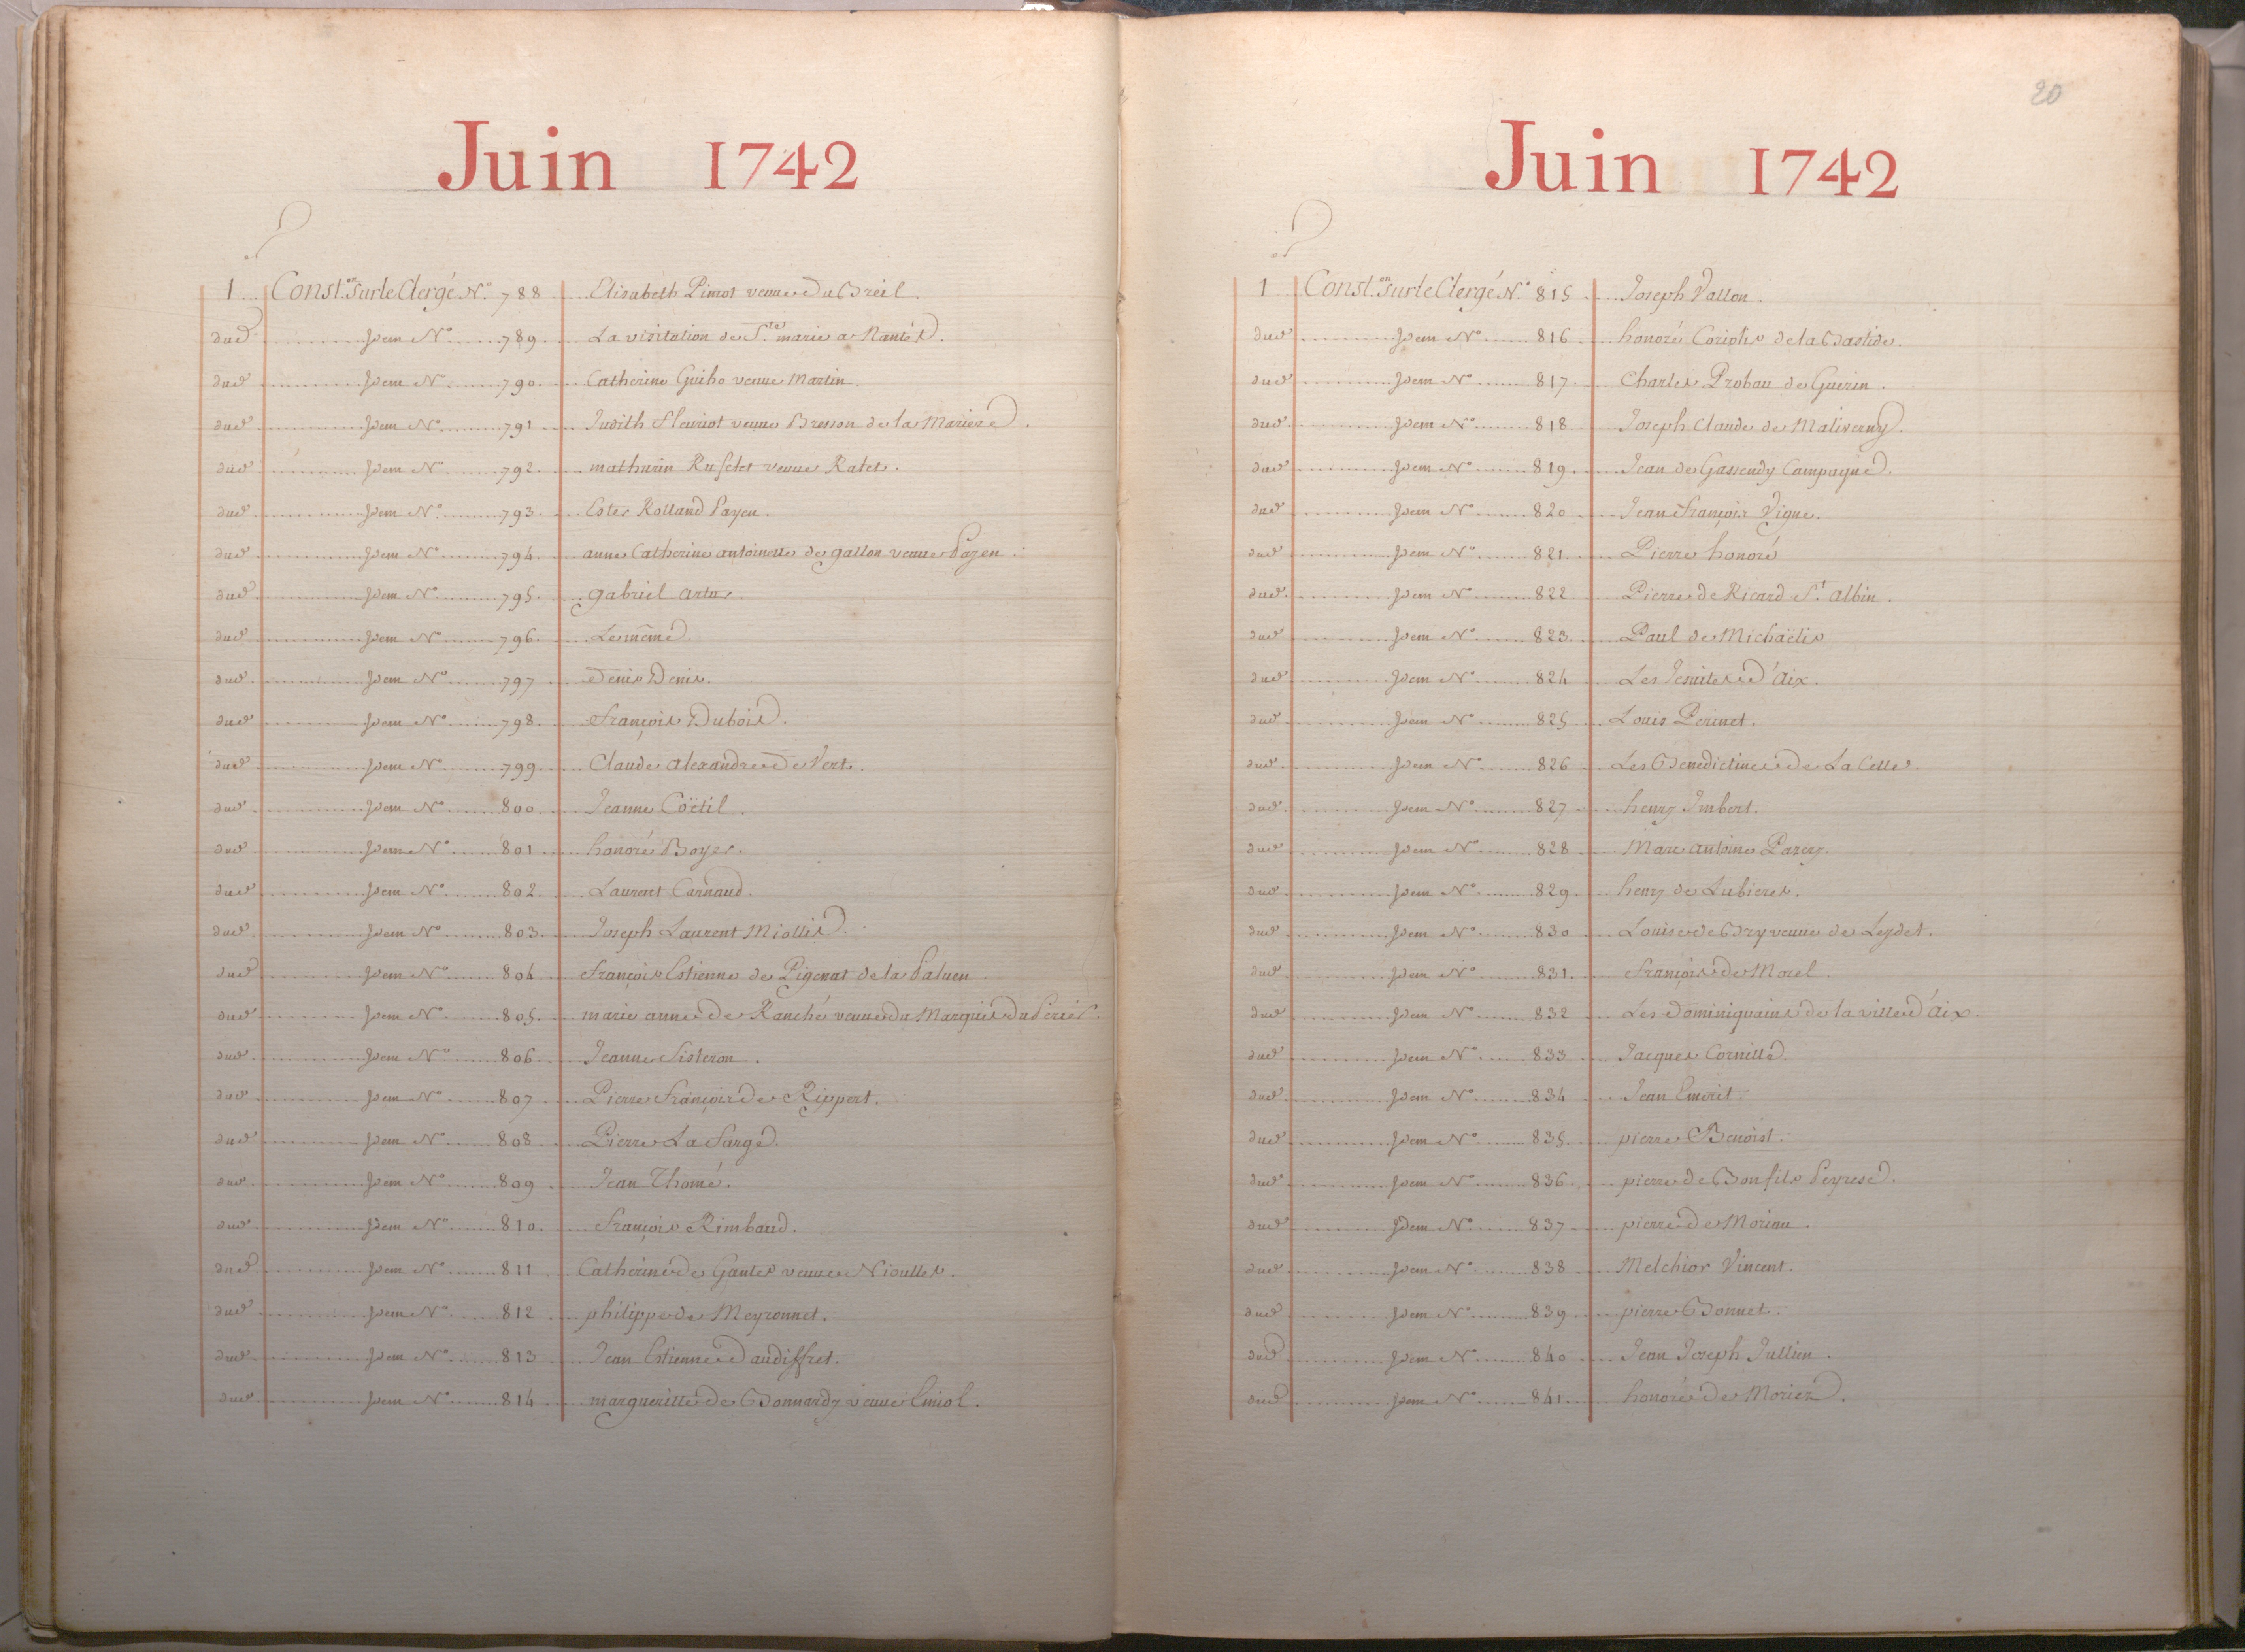 Juin 1742
1 Const.on sur le Clergé N.o 788 Elisabeth Pimot veuve du Breil.
dud. Idem No 789. La visitation de Ste marie a Nantes.
dud. Idem No 790. Catherine Guiho veuve Martin.
dud. Idem No 791 Judith Fleuriot veuve Bresson de la Mariere.
dud. Idem No 792. mathurin Rufelet veuve Ratet.
dud. Idem No 793. Ester Rolland Payen.
dud. Idem No 794. anne Catherine antoinette de gallon veuve Payen.
dud. Idem No 795. gabriel artur.
dud. Idem No 796. Le même.
dud. Idem No 797 Denis Denis.
dud. Idem No 798. François Dubois.
dud. Idem No 799. Claude alexandre de Vert.
dud. Idem No 800. Jeanne Coëtil.
dud. Idem No 801 honoré Boyer.
dud. Idem No 802. Laurent Carnaud.
dud. Idem No 803. Joseph Laurent Miollis.
dud. Idem No 804 François Estienne de Pigenat de la Paluen
dud. Idem No 805. marie anne de Ranché veuve du Marquis du Perier.
dud. Idem No 806 Jeanne Sisteron.
dud. Idem No 807 Pierre François de Rippert.
dud. Idem No 808 Pierre La Farge.
dud. Idem No 809 Jean Thomé.
dud. Idem No 810. François Rimbaud.
dud. Idem No 811 Catherine de Gautier veuve Nioulles.
dud. Idem No 812 philippe de Meyronnet.
dud. Idem No 813 Jean Estienne Daudiffret.
dud. Idem No 814 margueritte de Bonnardy veuve Emiol.
20
Juin 1742
1 Const.on sur le Clergé N.o 815 Joseph Vallon.
dud. Idem No 816 honoré Coriolis de la Bastide.
dud. Idem No 817. Charles Probau de Guerin.
dud. Idem No 818 Joseph Claude de Maliverny.
dud. Idem No 819. Jean de Gassendy Campagne.
dud. Idem No 820 Jean François Vigne.
dud. Idem No 821. Pierre honoré
dud. Idem No 822 Pierre de Ricard St albin.
dud. Idem No 823. Paul de Michaëlis
dud. Idem No 824 Les Jesuites d'Aix.
dud. Idem No 825 Louis Perinet.
dud. Idem No 826 Les Benedictines de La Celle.
dud. Idem No 827 henry Imbert.
dud. Idem No 828 Marc antoine Parery.
dud. Idem No 829. henry de Lubieres.
dud. Idem No 830 Louise de Bry veuve de Leydet.
dud. Idem No 831. François de Morel.
dud. Idem No 832 Les Dominiquains de la ville d'Aix.
dud. Idem No 833 Jacques Cornille.
dud. Idem No 834 Jean Emerit.
dud. Idem No 835. pierre Benoist.
dud. Idem No 836. pierre de Bonfils Peyrese.
dud. Idem No 837 pierre de Moriau.
dud. Idem No 838 Melchior Vincent.
dud. Idem No 839 pierre Bonnet.
dud. Idem No 840 Jean Joseph Jullien.
dud. Idem No 841. honoré de Moriez.